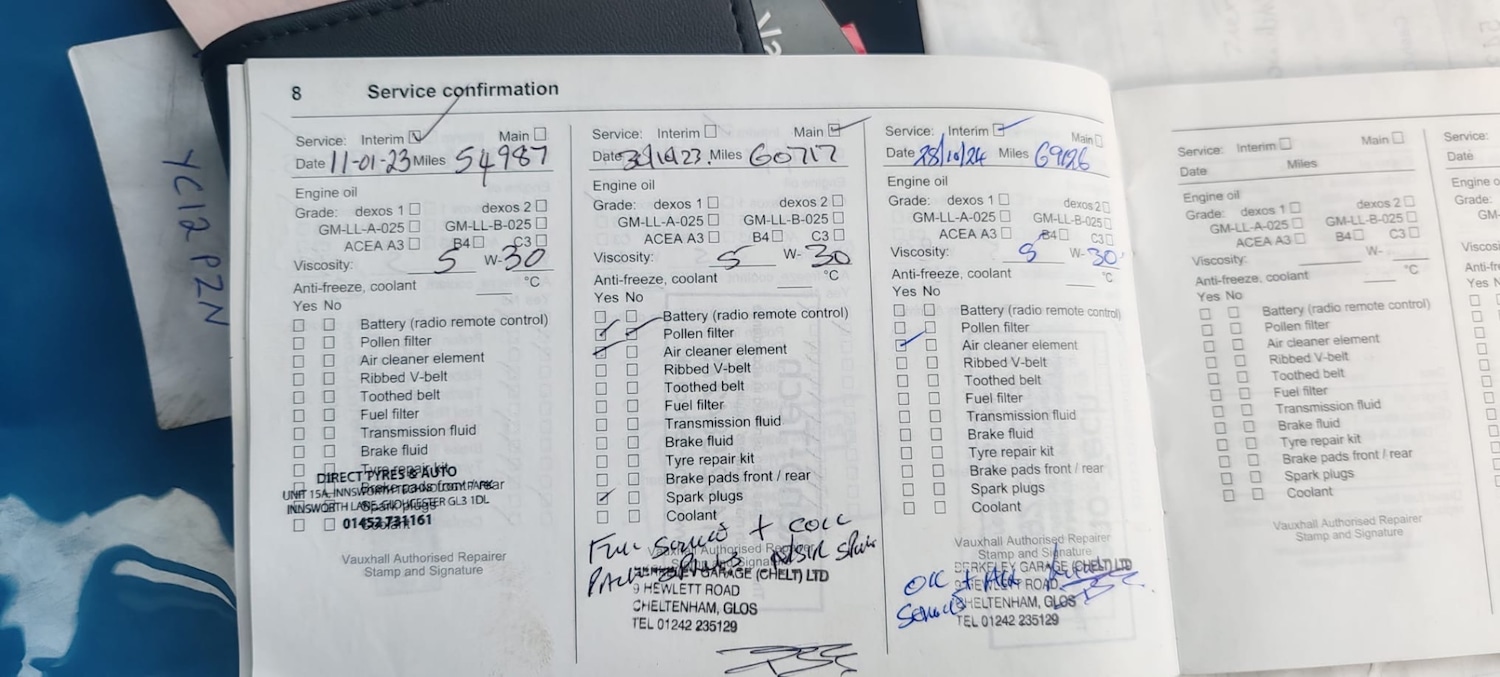 YC12 PZN
8 Service confirmation
Service: Interim Main
Date 11-01-23 Miles 54987
Engine oil
Grade: dexos 1 dexos 2
GM-LL-A-025 GM-LL-B-025
ACEA A3 B4 C3
Viscosity: 5 W-30
Anti-freeze, coolant °C
Yes No
Battery (radio remote control)
Pollen filter
Air cleaner element
Ribbed V-belt
Toothed belt
Fuel filter
Transmission fluid
Brake fluid
Tyre repair kit
DIRECT TYRES & AUTO
Brake pads front / rear
UNIT 15A, INNSWORTH TECHNOLOGY PARK
Spark plugs
INNSWORTH LANE, GLOUCESTER GL3 1DL
Coolant
01452 731161
Vauxhall Authorised Repairer
Stamp and Signature
Service: Interim Main
Date 10/23 Miles 60717
Engine oil
Grade: dexos 1 dexos 2
GM-LL-A-025 GM-LL-B-025
ACEA A3 B4 C3
Viscosity: 5 W-30
Anti-freeze, coolant °C
Yes No
Battery (radio remote control)
Pollen filter
Air cleaner element
Ribbed V-belt
Toothed belt
Fuel filter
Transmission fluid
Brake fluid
Tyre repair kit
Brake pads front / rear
Spark plugs
Coolant
Full service +
Vauxhall Authorised Repairer
Stamp and Signature
GARAGE (CHELT) LTD
9 HEWLETT ROAD
CHELTENHAM, GLOS
TEL 01242 235129
Service: Interim Main
Date 28/10/24 Miles 69126
Engine oil
Grade: dexos 1 dexos 2
GM-LL-A-025 GM-LL-B-025
ACEA A3 B4 C3
Viscosity: 5 W-30
Anti-freeze, coolant °C
Yes No
Battery (radio remote control)
Pollen filter
Air cleaner element
Ribbed V-belt
Toothed belt
Fuel filter
Transmission fluid
Brake fluid
Tyre repair kit
Brake pads front / rear
Spark plugs
Coolant
Vauxhall Authorised Repairer
Stamp and Signature
BERKELEY GARAGE (CHELT) LTD
9 HEWLETT ROAD
CHELTENHAM, GLOS
TEL 01242 235129
Service: Interim Main
Date Miles
Engine oil
Grade: dexos 1 dexos 2
GM-LL-A-025 GM-LL-B-025
ACEA A3 B4 C3
Viscosity: W-
Anti-freeze, coolant °C
Yes No
Battery (radio remote control)
Pollen filter
Air cleaner element
Ribbed V-belt
Toothed belt
Fuel filter
Transmission fluid
Brake fluid
Tyre repair kit
Brake pads front / rear
Spark plugs
Coolant
Vauxhall Authorised Repairer
Stamp and Signature
Service:
Date
Engine o
Grade:
Viscosi
Anti-fr
Yes N